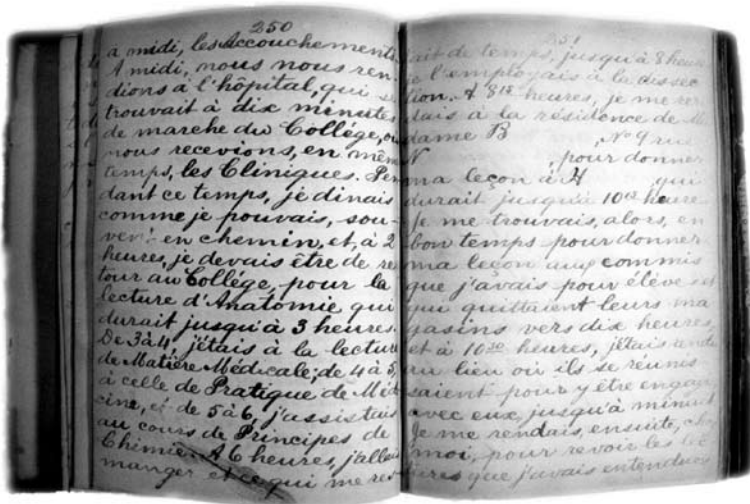 250
à midi, les Accouchements.
A midi, nous nous ren-
dions à l'hôpital, qui se
trouvait à dix minutes
de marche du Collège, où
nous recevions, en même
temps, les Cliniques. Pen
dant ce temps, je dinais
comme je pouvais, sou-
vent en chemin, et, à 2
heures, je devais être de re
tour au Collége, pour la
lecture d'Anatomie qui
durait jusqu'à 3 heures.
De 3 à 4, j'étais à la lecture
de Matière Médicale; de 4 à 5,
à celle de Pratique de Méd
cine, et de 5 à 6, j'assistais
au cours de Principes de
Chimie. A 6 heures, j'allais
manger et ce qui me res
251
tait de temps, jusqu'à 8 heures
je l'employais à la dissec
tion. A 8 heures, je me ren
dais à la résidence de Ma
dame B , No 9 rue
N , pour donner
ma leçon à H , qui
durait jusqu'à 10 heures.
Je me trouvais, alors, en
bon temps pour donner
ma leçon aux commis
que j'avais pour élèves et
qui quittaient leurs ma
gasins vers dix heures,
et à 10 30 heures, j'étais rendu
au lieu où ils se réunis
saient pour y être engagé
avec eux jusqu'à minuit
Je me rendais, ensuite, chez
moi, pour revoir les lec
tures que j'avais entendues